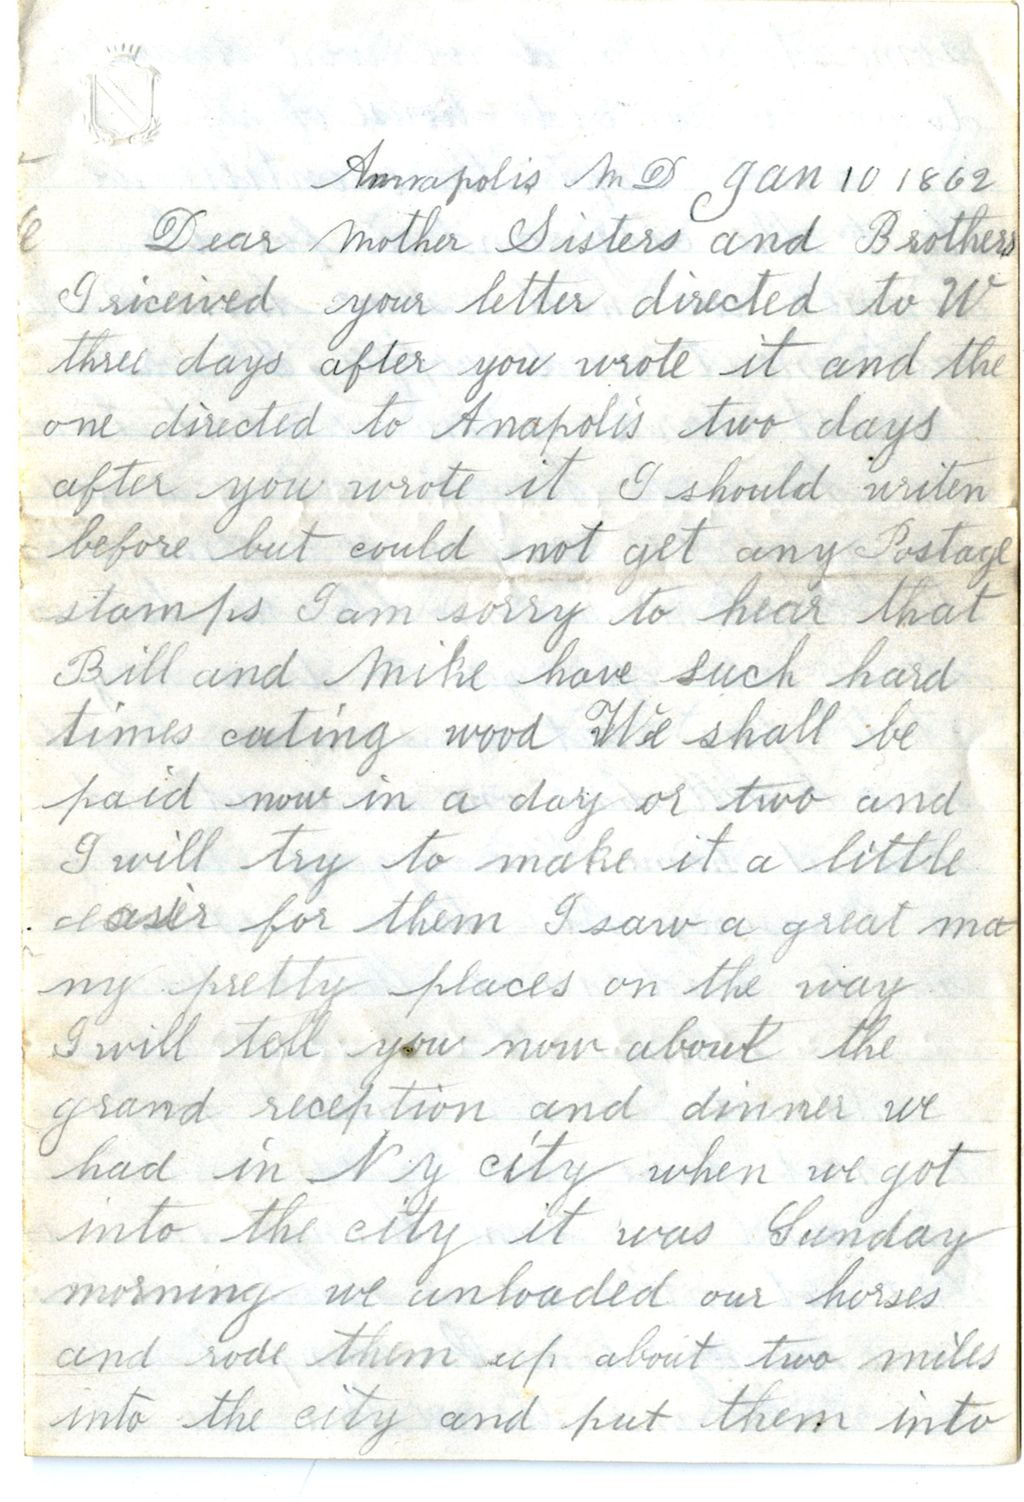 Annapolis MD Jan 10 1862
Dear Mother Sisters and Brothers
I riceived your letter directed to W
three days after you wrote it and the
one directed to Anapolis two days
after you wrote it I should writen
before but could not get any Postage
stamps I am sorry to hear that
Bill and Mike have such hard
times cuting wood We shall be
paid now in a day or two and
I will try to make it a little
easier for them I saw a great ma
ny pretty places on the way
I will tell you now about the
grand reception and dinner we
had in N y city when we got
into the city it was Sunday
morning we unloaded our horses
and rode them up about two miles
into the city and put them into